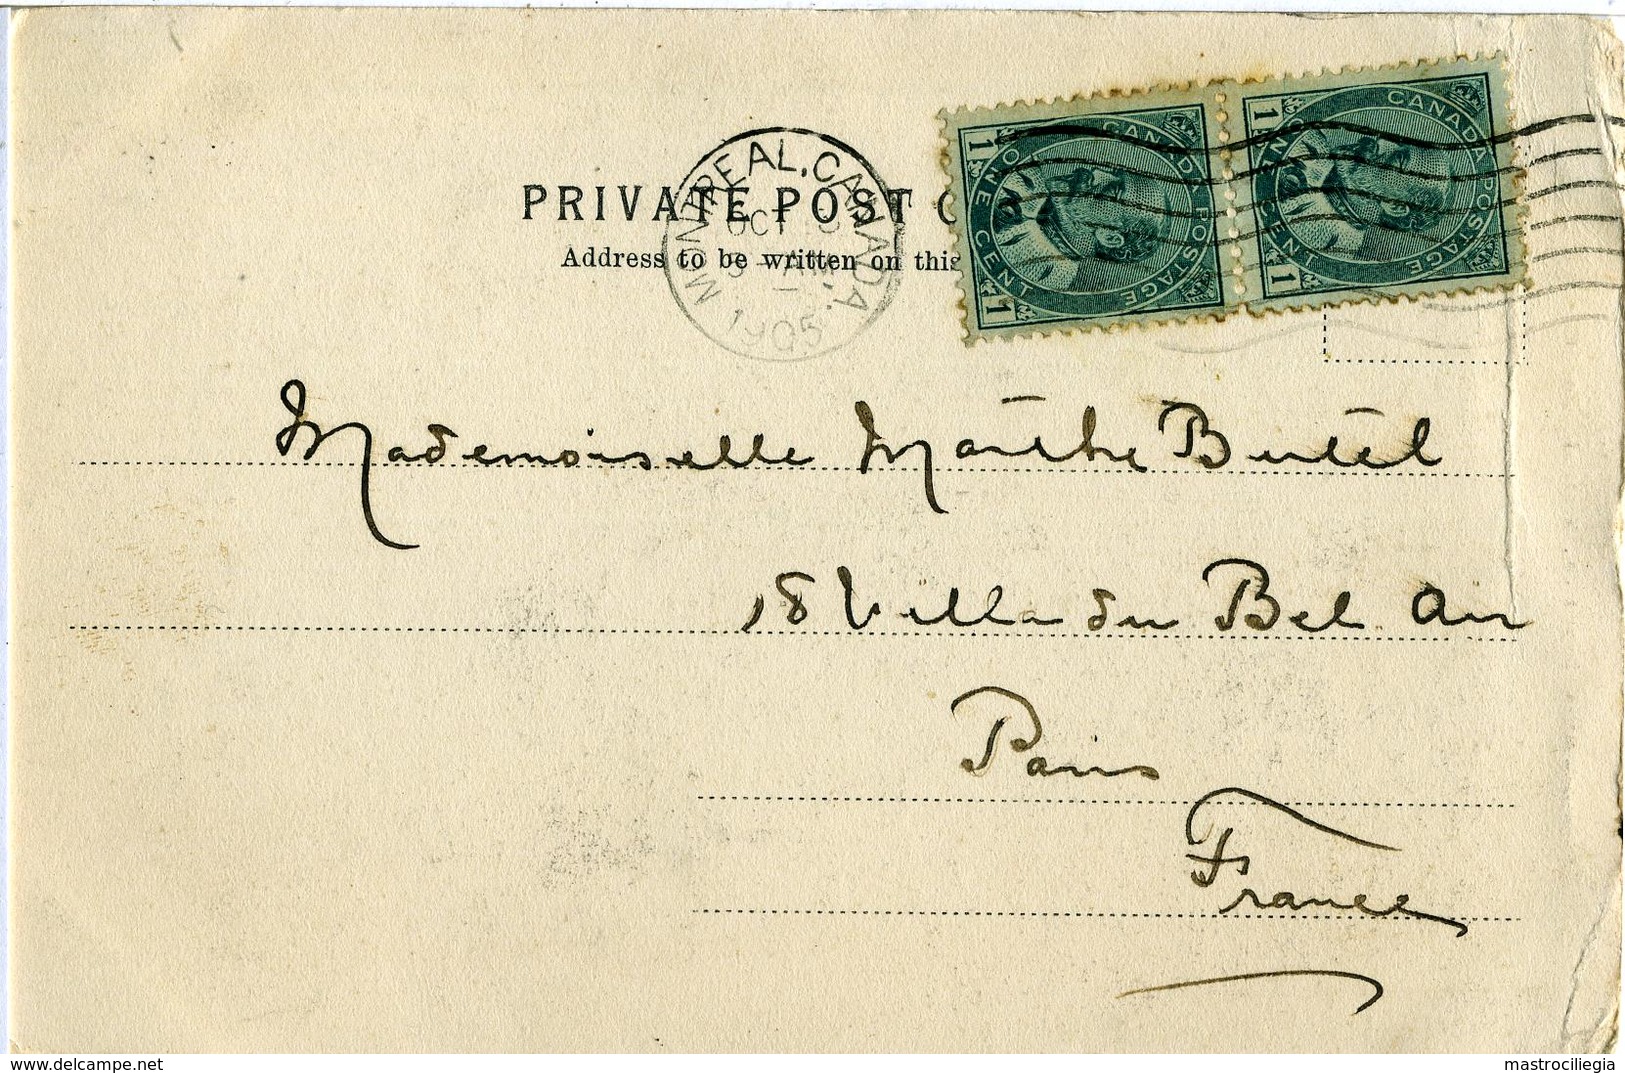 PRIVATE POST
Address to be written on this
MONTREAL, CANADA.
OCT
AM
1905
CANADA POSTAGE
ONE CENT
1 1
CANADA POSTAGE
ONE CENT
1 1
Mademoiselle Marthe Butel
18 Villa du Bel Air
Paris
France
www.delcampe.net
mastrociliegia